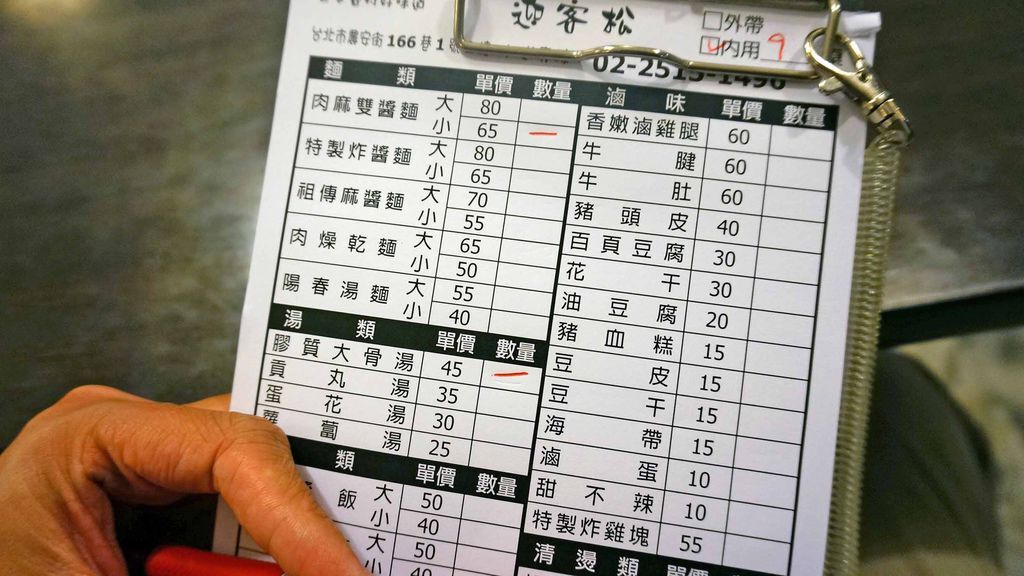 迎客松
□外帶
□内用 9
台北市農安街166巷1
02-2515-1496
麵類 單價 數量
肉麻雙醬麵 大 80
小 65 一
特製炸醬麵 大 80
小 65
祖傳麻醬麵 大 70
小 55
肉燥乾麵 大 65
小 50
陽春湯麵 大 55
小 40
湯類 單價 數量
膠質大骨湯 45 一
貢丸湯 35
蛋花湯 30
蘿蔔湯 25
類 單價 數量
飯 大 50
小 40
大 50
小 40
滷味 單價 數量
香嫩滷雞腿 60
牛腱 60
牛肚 60
豬頭皮 40
百頁豆腐 30
花干 30
油豆腐 20
豬血糕 15
豆皮 15
豆干 15
海帶 15
滷蛋 10
甜不辣 10
特製炸雞塊 55
清燙類 單價 數量